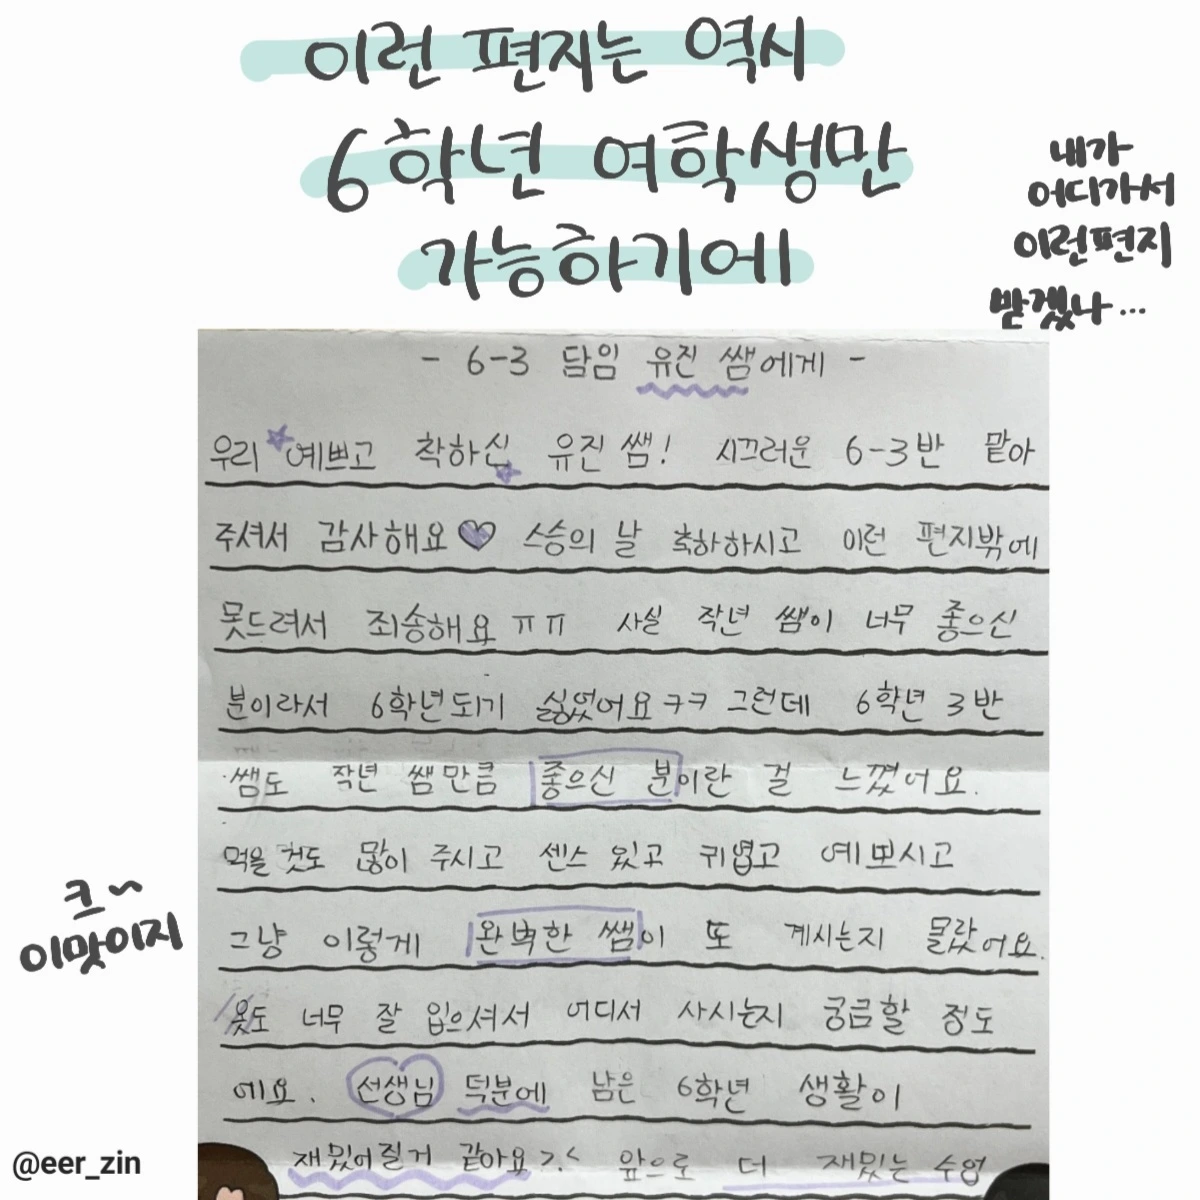 이런 편지는 역시
6학년 여학생만
가능하기에
내가
어디가서
이런편지
받겠나...
- 6-3 담임 유진 쌤에게 -
우리 예쁘고 착하신 유진 쌤! 시끄러운 6-3반 맡아
주셔서 감사해요♡ 스승의 날 축하하시고 이런 편지밖에
못드려서 죄송해요 ㅠㅠ 사실 작년 쌤이 너무 좋으신
분이라서 6학년되기 싫었어요ㅋㅋ 그런데 6학년 3반
쌤도 작년 쌤만큼 좋으신 분이란 걸 느꼈어요.
먹을 것도 많이 주시고 센스 있고 귀엽고 예쁘시고
그냥 이렇게 완벽한 쌤이 또 계시는지 몰랐어요.
크~
이맛이지
옷도 너무 잘 입으셔서 어디서 사시는지 궁금할 정도
에요. 선생님 덕분에 남은 6학년 생활이
재밌어질거 같아요 >.< 앞으로 더 재밌는 수업
@eer_zin